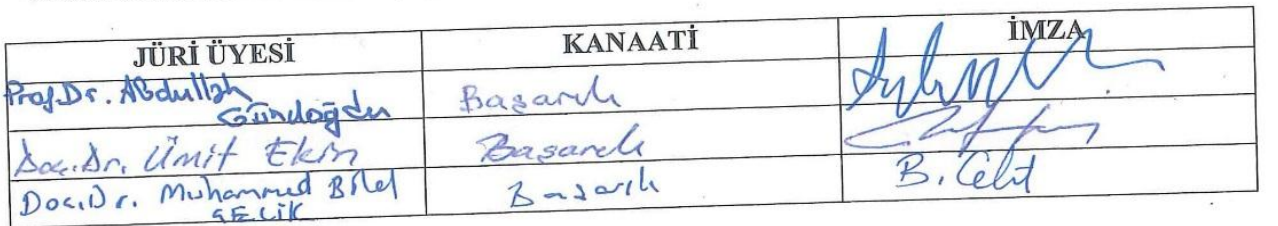 JÜRİ ÜYESİ KANAATİ İMZA
Prof.Dr. Abdullah
Gündoğdu Başarılı
Doç.Dr. Ümit Ekin Başarılı
Doç.Dr. Muhammed Bilal
ÇELİK Başarılı B. Çelik